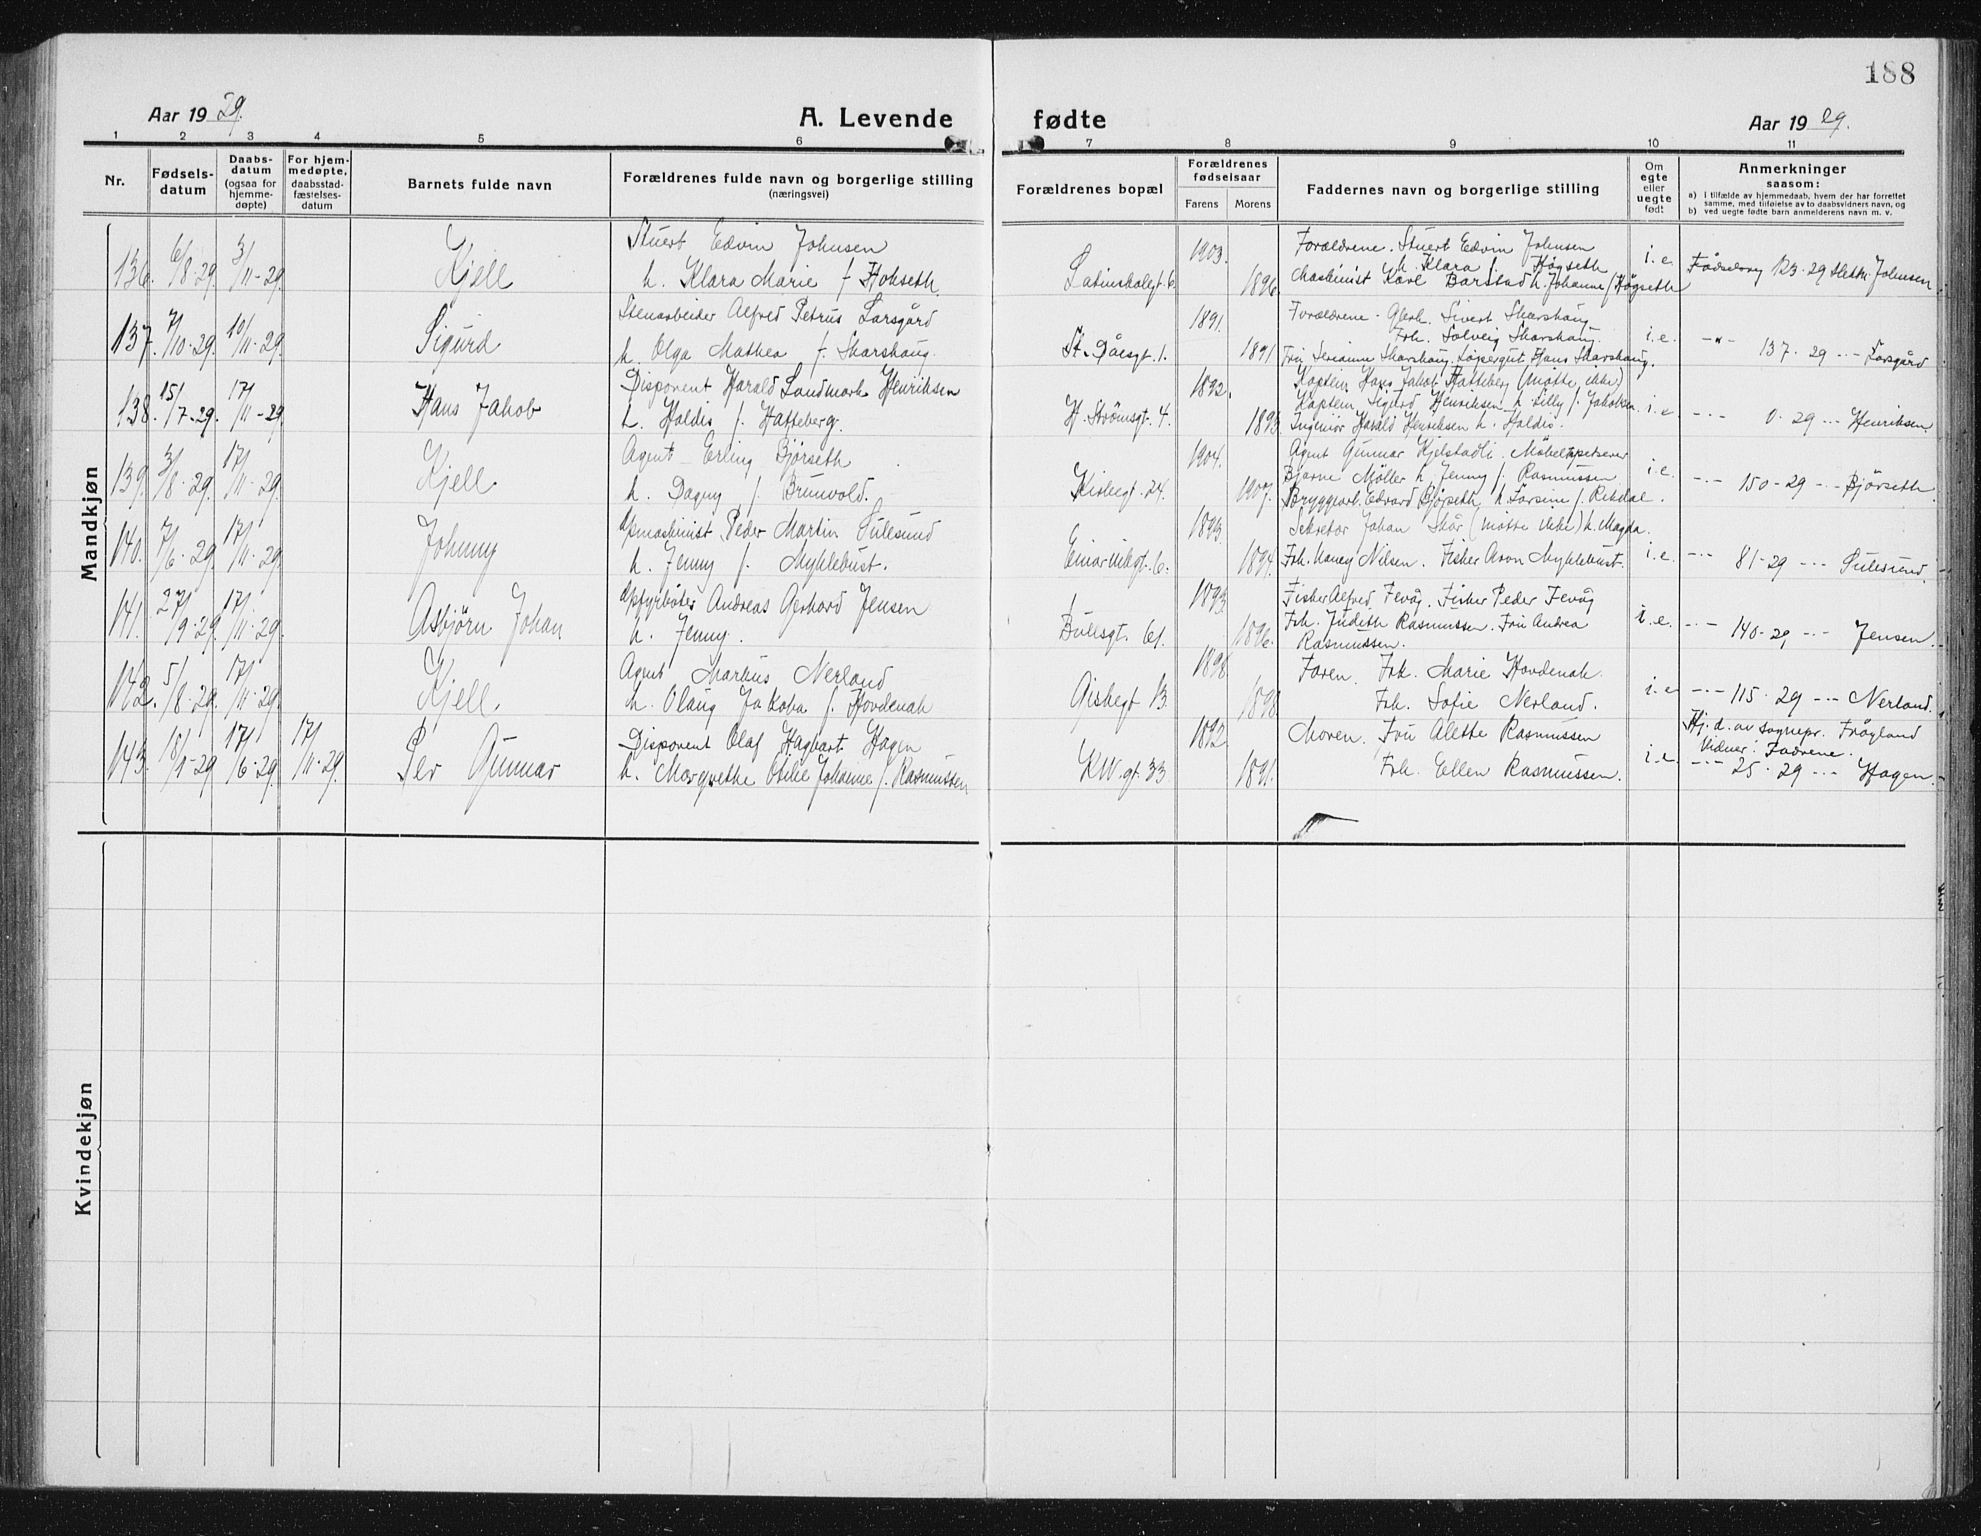 188
Aar 19 29.
A. Levende
fødte
Aar 19 29.
1 2 3 4 5 6 7 8 9 10 11
Nr.
Fødsels-
datum
Daabs-
datum
(ogsaa for
hjemme-
døpte)
For hjem-
medøpte,
daabsstad-
fæstelses-
datum
Barnets fulde navn
Forældrenes fulde navn og borgerlige stilling
(næringsvei)
Forældrenes bopæl
Forældrenes
fødselsaar
Farens
Morens
Faddernes navn og borgerlige stilling
Om
egte
eller
uegte
født
Anmerkninger
saasom:
a) i tilfælde av hjemmedaab, hvem der har forrettet
samme, med tilføielse av to daabsvidners navn, og
b) ved uegte fødte barn anmelderens navn m. v.
Mandkjøn
136. 6/8-29. 3/11-29. Kjell
Stuert Edvin Johnsen
h. Klara Marie f. Hokseth
Latinskolegt. 6. 1903. 1896.
Forældrene. Stuert Edvin Johnsen
h. Klara f. Høgseth
Maskinist Karl Barstad h. Johanne f. Høgseth
i.e. 123-29 Johnsen
137. 7/10-29. 10/11-29. Sigurd
Stenarbeider Alfred Petrus Larsgård
h. Olga Mathea f. Skarshaug.
St. Dåesgt. 1. 1891. 1891
Forældrene. Sivert Skarshaug
Frk. Solveig Skarshaug.
Hans Skarshaug.
i.e. -"- 137-29 -"- Larsgård
138. 15/7-29. 17/11-29 Hans Jakob
Disponent Harald Landmark Henriksen
h. Haldis f. Hatteberg.
H. Strømsgt. 4. 1892. 1893.
Kaptein Hans Jakob Hatteberg (møtte ikke)
Kaptein Sigurd Henriksen h. Lilly f. Jakobsen
Ingeniør Harald Henriksen h. Haldis.
i.e. -"- 0-29 -"- Henriksen.
139. 3/8-29. 17/11-29. Kjell
Agent Erling Bjørseth
h. Dagny f. Brunvold.
Kirkegt. 24. 1904. 1907.
Agent Gunnar Kjelstadli. Møbeltapetserer
Bjarne Møller h. Jenny f. Rasmussen
Bryggearb. Edvard Bjørseth h. Larsine f. Rekdal.
i.e. -"- 150-29 -"- Bjørseth.
140. 7/6-29. 17/11-29. Johnny
Peder Martin Sulesund
h. Jenny f. Myklebust.
Einarvikgt. 6. 1893. 1894.
Sekretær Johan Skår (møtte ikke) h. Magda.
Frk. Nancy Nilsen. Fisker Aron Myklebust.
i.e. -"- 81-29 -"- Sulesund.
141. 27/9-29. 17/11-29. Asbjørn Johan
Andreas Gerhard Jensen
h. Jenny.
Bullsgt. 61. 1893. 1896.
Fisker Alfred Fevåg. Fisker Peder Fevåg
Frk. Judith Rasmussen. Fru Andrea
Rasmussen.
i.e. -"- 140-29 -"- Jensen.
142. 5/8-29. 17/11-29. Kjell.
Agent Markus Nerland
h. Olaug Jakoba f. Hovdenak
Giskegt 13. 1898. 1898
Faren. Frk. Marie Hovdenak.
Frk. Sofie Nerland.
i.e. -"- 115-29 -"- Nerland.
143. 18/1-29 17/6-29. 17/11-29. Per Gunnar
Disponent Olaf Hagbart Hagen
h. Margrethe Otilie Johanne f. Rasmussen
KW gt. 33 1892. 1891.
Moren. Fru Alette Rasmussen
Frk. Ellen Rasmussen.
i.e. Hj. d. av sognepr. Frøyland
Vidner: Fadrene.
-"- 25-29 -"- Hagen.
Kvindekjøn